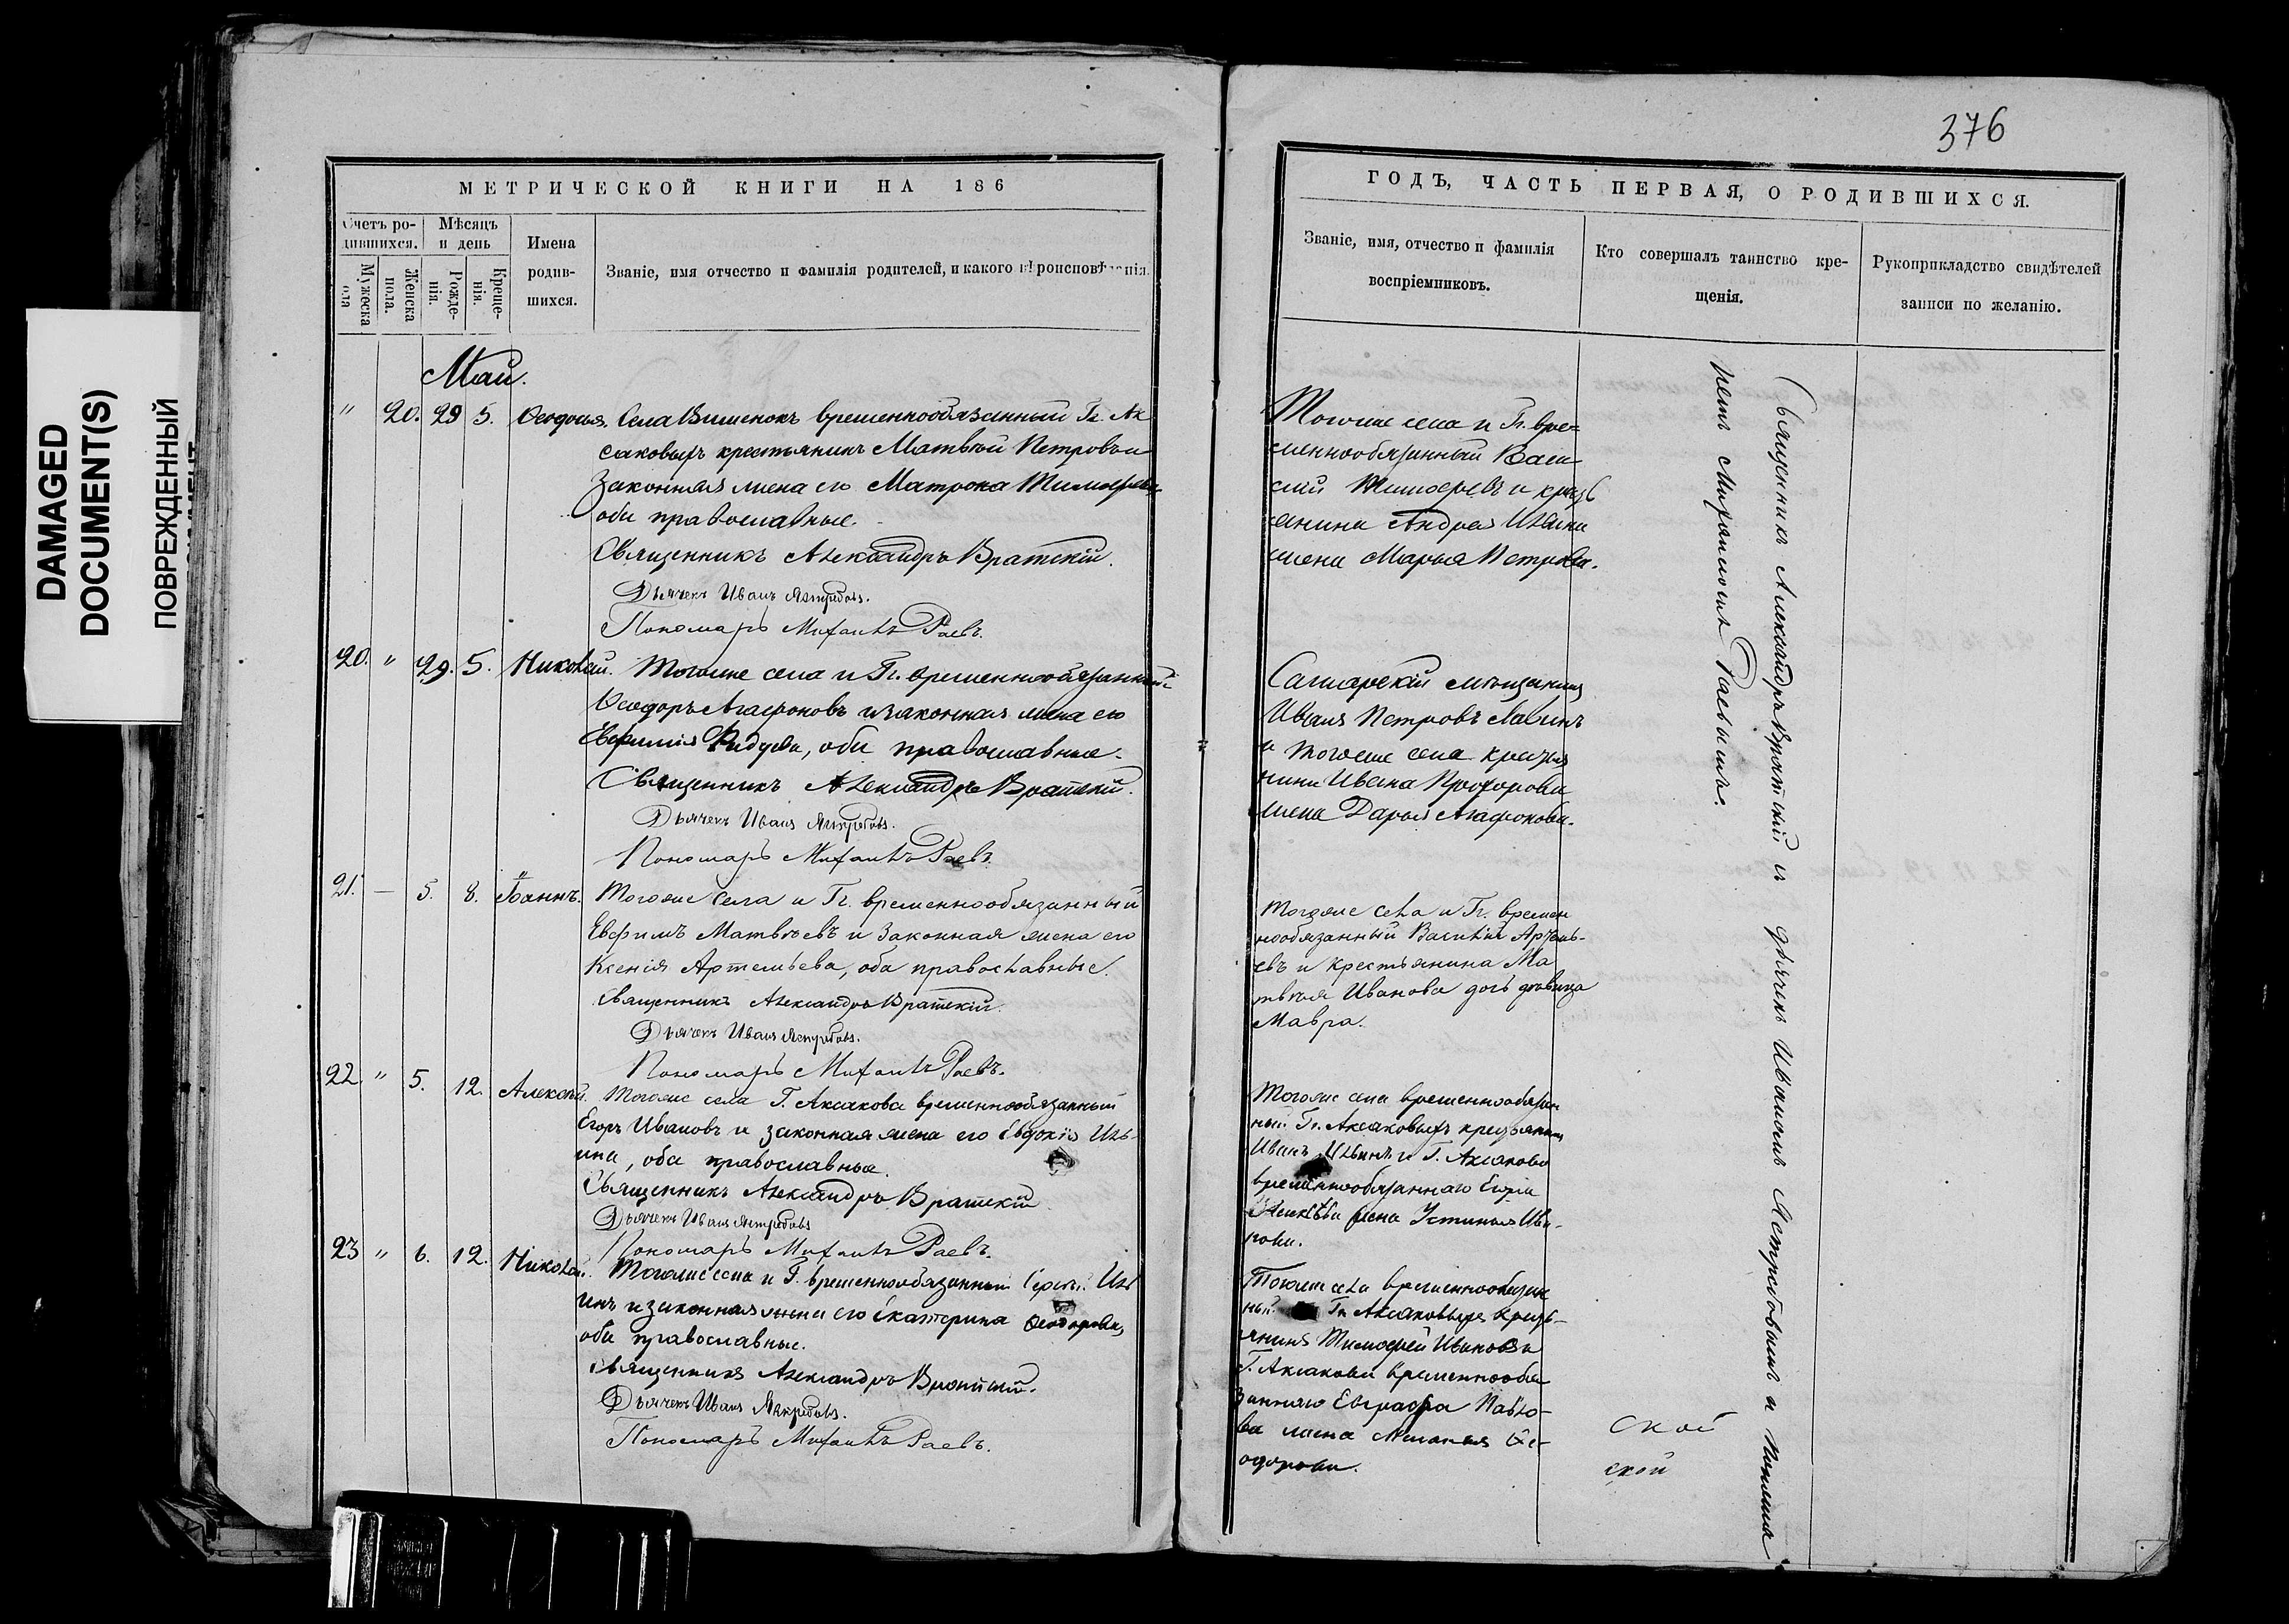 DAMAGED
DOCUMENT(S)
ПОВРЕЖДЕННЫЙ
376
МЕТРИЧЕСКОЙ КНИГИ НА 186
Счетъ ро-
дившихся.
Мѣсяцъ
и день
Мужеска
пола
Женска
пола.
Рожде-
нія.
Креще-
нія.
Имена
родив-
шихся.
Званіе, имя отчество и фамилія родителей, и какого вѣроисповѣданія.
Май.
" 20. 29 5. Ѳеодосья. Села Вишенокъ временнообязанный Гг. Ак
саковыхъ крестьянинъ Матвѣй Петровъ и
законная жена его Матрона Тимоѳеева
оба православные.
Священникъ Александръ Вратскій.
Дьячекъ Иванъ Ястребовъ.
Пономарь Михаилъ Раевъ.
20. " 29. 5. Николай. Тогоже села и Гг. временнообязанный
Ѳеодоръ Агафоновъ и законная жена его
Евфимія, оба православные.
Священникъ Александръ Вратскій.
Дьячекъ Иванъ Ястребовъ.
Пономарь Михаилъ Раевъ.
21. — 5. 8. Іоаннъ. Тогоже села и Гг. временнообязанный
Евфимъ Матвѣевъ и законная жена его
Ксенія Артемьева, оба православные.
Священникъ Александръ Вратскій.
Дьячекъ Иванъ Ястребовъ.
Пономарь Михаилъ Раевъ.
22. " 5. 12. Алексѣй. Тогоже села Г. Аксакова временнообязанный
Егоръ Ивановъ и законная жена его Евдокія Иль-
ина, оба православные.
Священникъ Александръ Вратскій
Дьячекъ Иванъ Ястребовъ
Пономарь Михаилъ Раевъ.
23 " 6. 12. Николай. Тогоже села и Г. временнообязанный Сергѣй Иль
инъ и законная жена его Екатерина Ѳеодорова,
оба православные.
Священникъ Александръ Вратскій.
Дьячекъ Иванъ Ястребовъ.
Пономарь Михаилъ Раевъ.
ГОДЪ, ЧАСТЬ ПЕРВАЯ, О РОДИВШИХСЯ.
Званіе, имя, отчество и фамилія
воспріемниковъ.
Кто совершалъ таинство кре-
щенія.
Рукоприкладство свидѣтелей
записи по желанію.
Тогоже села и Гг. вре=
меннообязанный Васи
лій Тимоѳеевъ и кресть
янина Андрея Ильина
жена Марья Петрова.
Самарскій мѣщанинъ
Иванъ Петровъ Лапинъ
и тогоже села крестья
нина Ивана Прохорова
жена Дарья Агафонова.
Тогоже села и Гг. времен
нообязанный Василій Артемь-
евъ и крестьянина Ма
твѣя Иванова дочь дѣвица
Мавра.
Тогоже села временнообязан
ный Гг. Аксаковыхъ крестьянинъ
Иванъ Ильинъ и Г. Аксакова
временнообязаннаго Егора
Алексѣева жена Устинья Ива-
нова.
Тогоже села временнообязан
ный Гг. Аксаковыхъ кресть-
янинъ Тимоѳей Ивановъ и
Г. Аксакова временнообя
заннаго Евграфа Павло-
ва жена Меланья Ѳе-
одорова.
Священникъ Александръ Вратскій и дьячекъ Иванъ Ястребовымъ и пономаремъ
Михаиломъ Раевымъ.
ской
ской